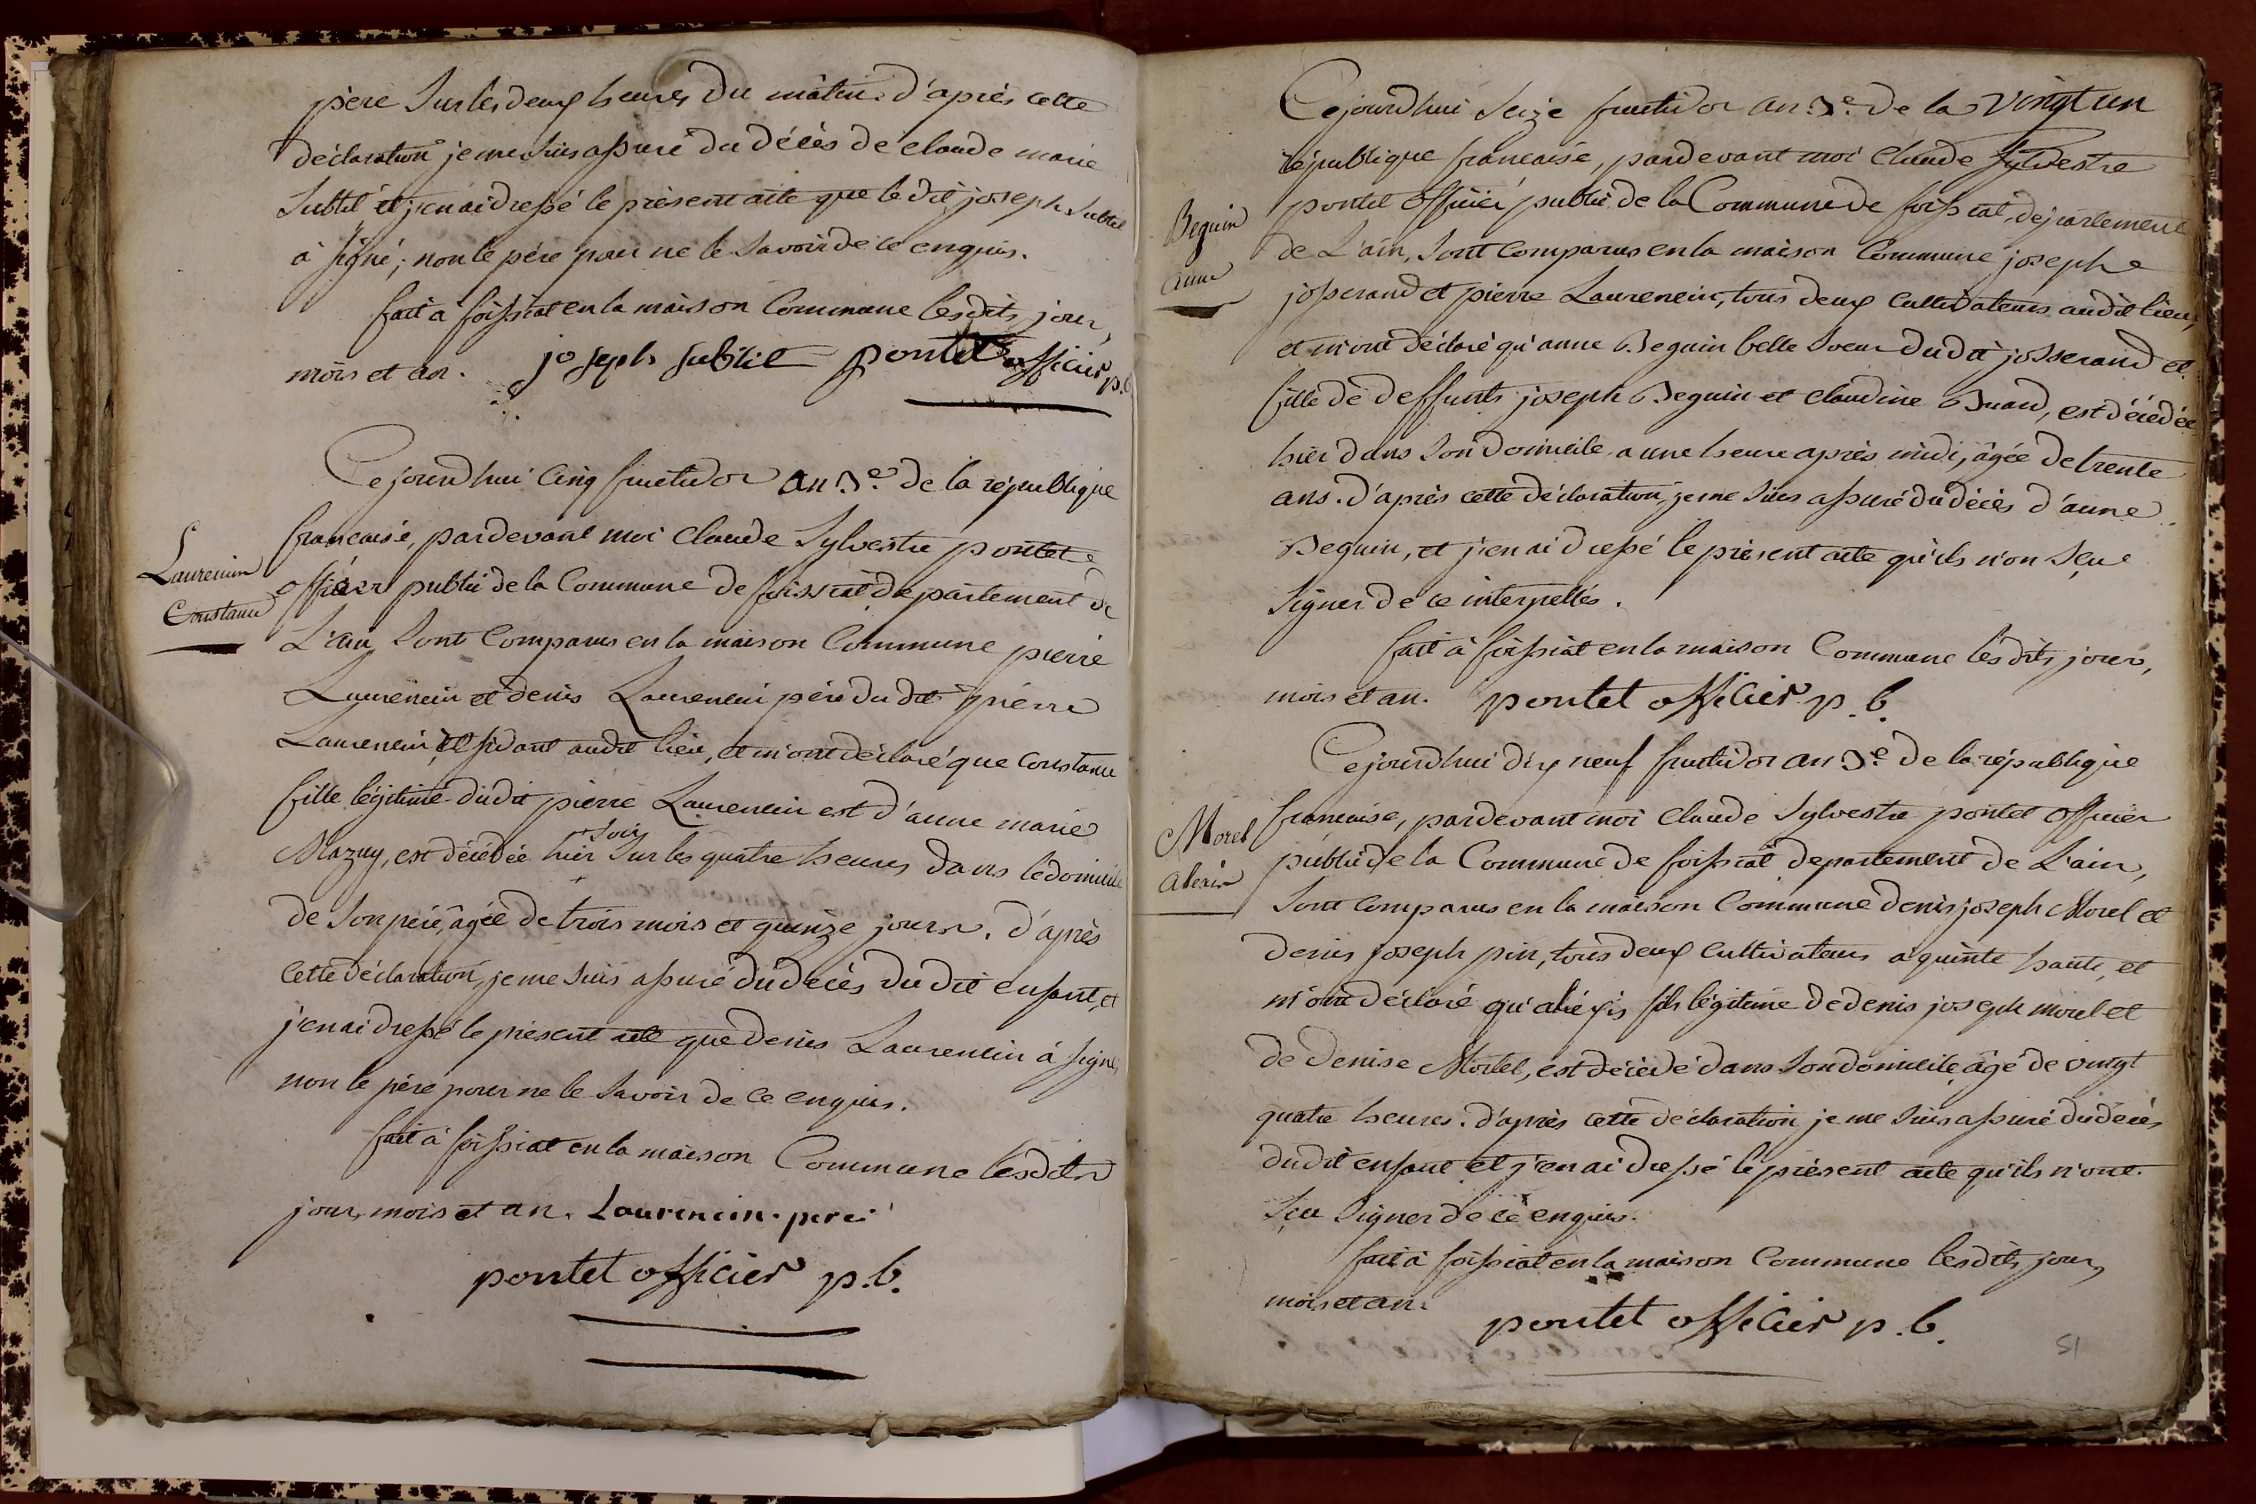 père sur les deux heures du matin. d'après cette
déclaration je me suis assuré du décès de claude marie
Subtil et j'en ai dressé le présent acte que le dit joseph subtil
à signé; non le père pour ne le savoir de ce enquis.
fait à foissiat en la maison Commune lesdits jour,
mois et an. joseph subtil pontet officier p.b
Cejourdhui Cinq fructidor an 3e. de la république
Laurencin
Constance
francaise, pardevant moi Claude Sylvestre pontet
officier public de la Commune de foissiat département de
L'ain, Sont Comparus en la maison Commune pierre
Laurencin et denis Laurencin père du dit pierre
Laurencin, résidant audit lieu, et m'ont déclaré que Constance
fille légitime dudit pierre Laurencin est d'anne marie
Mazuy, est décédée hier soir sur les quatre heures dans le domicile
de son père, âgée de trois mois et quinze jours. d'après
cette déclaration, je me suis assuré du décès du dit enfant, et
j'en ai dressé le présent acte que denis Laurencin à signé,
non le père pour ne le savoir de ce enquis.
fait à foissiat en la maison Commune lesdits
jour, mois et an. Laurencin. pere
pontet officier p.b.
Cejourdhui seize fructidor an 3e. de la vingt un
république francaise, pardevant moi Claude Sylvestre
Beguin
anne
pontet officier public de la Commune de foissiat, département
de L'ain, sont Comparus en la maison Commune joseph
josserand et pierre Laurencin, tous deux cultivateurs audit lieu,
et m'ont déclaré qu'anne Beguin belle soeur dudit josserand et
fille de deffunts joseph Beguin et claudine Buard, est décédée
hier dans son domicile a une heure après midi, âgée de trente
ans. d'après cette déclaration, je me suis assuré du décès d'anne
Beguin, et j'en ai dressé le présent acte qu'ils n'on sçue
signer de ce interpellés.
fait à foissiat en la maison Commune lesdits jour,
mois et an. pontet officier p.b.
Cejourdhui dix neuf fructidor an 3e de la république
Morel
alexis
francaise, pardevant moi Claude Sylvestre pontet officier
public de la Commune de foissiat departement de L'ain,
sont comparus en la maison Commune denis joseph Morel et
denis joseph pin, tous deux cultivateurs a quinte haute, et
m'ont déclaré qu'alexis fils légitime de denis joseph morel et
de denise Morel, est décédé dans son domicile, âgé de vingt
quatre heures. d'après cette déclaration je me suis assuré du décès
dudit enfant et j'en ai dressé le présent acte qu'ils n'ont
sçu signer de ce enquis.
fait à foissiat en la maison Commune lesdits jour,
mois et an. pontet officier p.b.
51